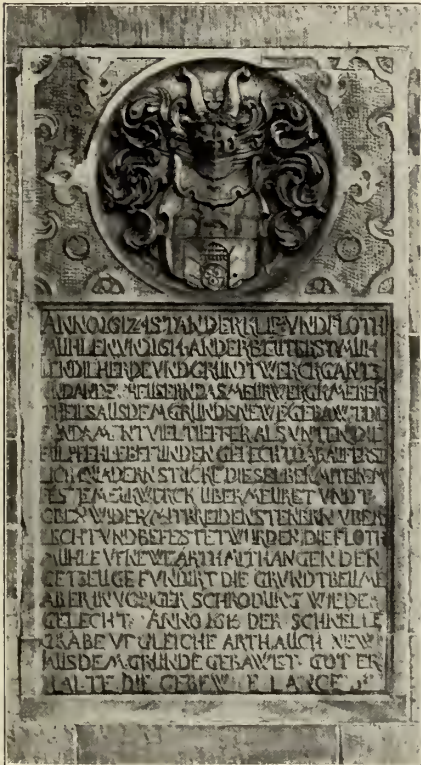 ANNO 1612 IST AN DER KLIE VND FLOTH
MUHLEN VND 1614 AN DER BEUTERSTMUH
LEN DIE HERDE VND GRUNDTWERCR GANTZ
MEUSERN DAS MEURWERCH MERER
THEILS AUS DEM GRUNDE NEW GEBAWET DIE
FUNDAMENT VIEL TIEFFER ALS VNTEN DIE
FULPFEHLE BEFUNDEN GELECHT DARAUF ERST
LICH QUADERN STUCKE DIESELBEN MIT EINEM
FESTEM MEURWERCK UBERMEURET VNDT
OBEN WIDER MIT BREIDEN STENERN VBER
LECHT VND BEFESTET WURDEN DIE FLOTH
MUHLE VF NEWE ARTH ALTHANGEN DEN
GETZEUGE FVNDIRT DIE GRVNDTBEUME
ABER IN VORIGER SCHRODUNG WIEDER
GELECHT ANNO 1615 DER SCHNELLE
GRABE VF GLEICHE ARTH AUCH NEW
AUS DEM GRUNDE GEBAWET GOT ER
HALTE DIE GEBEWDE LANGE